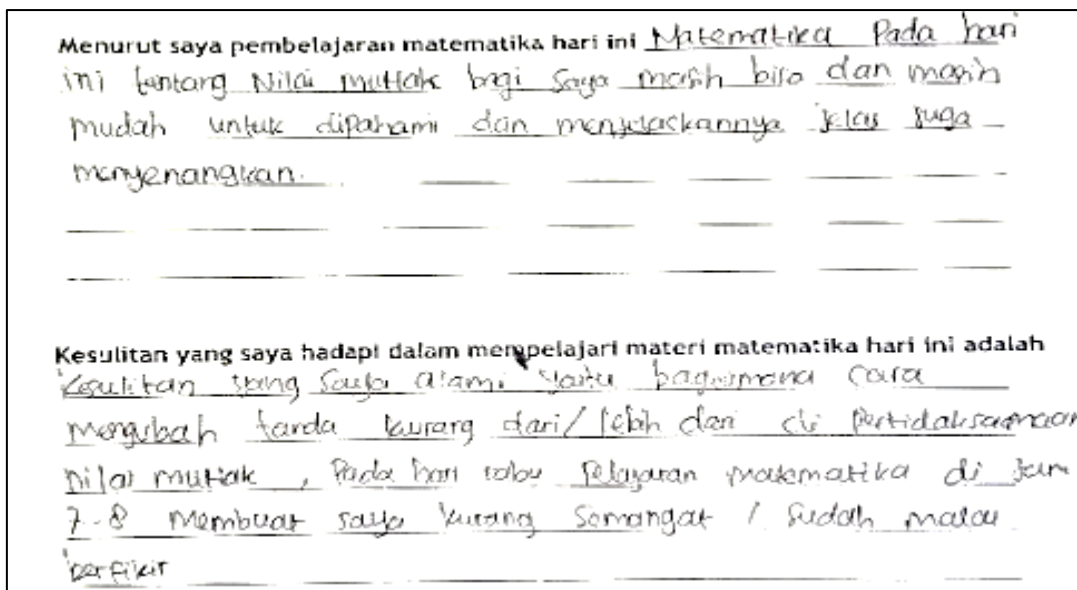 Menurut saya pembelajaran matematika hari ini Matematika Pada hari
ini tentang Nilai mutlak bagi saya masih bisa dan masih
mudah untuk dipahami dan menjelaskannya jelas juga
menyenangkan.
Kesulitan yang saya hadapi dalam mempelajari materi matematika hari ini adalah
Kesulitan yang saya alami yaitu bagaimana cara
mengubah tanda kurang dari/lebih dari di Pertidaksamaan
nilai mutlak, Pada hari rabu Pelajaran matematika di jam
7-8 Membuat saya kurang Semangat / Sudah malas
berfikir